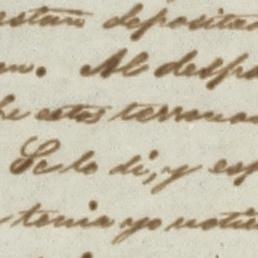 estan deposita
en. Al desp
he estos terrenos
Se lo di, y esp
tenia yo noti